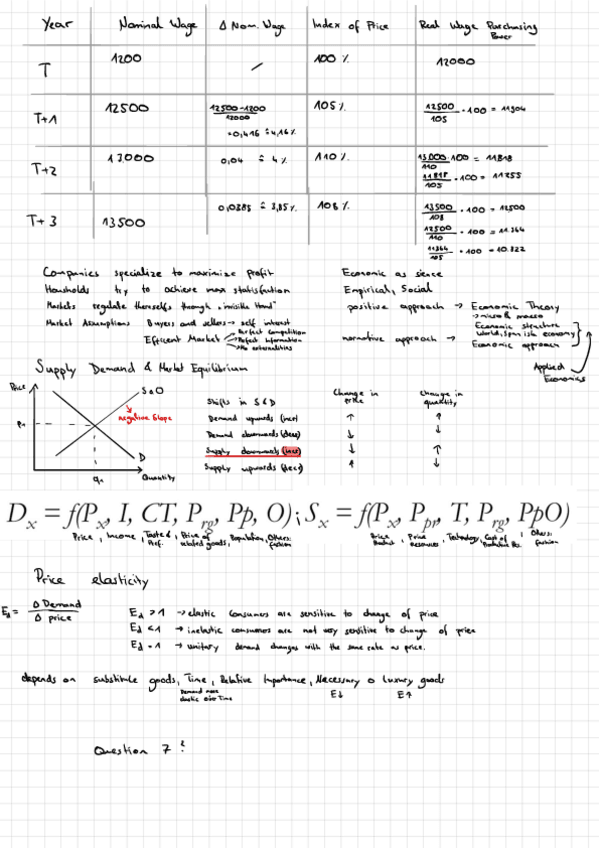 Year Nominal Wage Δ Nom. Wage Index of Price Real Wage Purchasing Power
T 1200 / 100 % 12000
T+1 12500 12500-1200 / 12000 = 0,416 ≙ 4,16% 105 % 12500/105 · 100 = 11904
T+2 13000 0,04 ≙ 4% 110 % 13.000/110 · 100 = 11818
11818/105 · 100 = 11255
T+3 13500 0,0385 ≙ 3,85% 108 % 13500/108 · 100 = 12500
12500/110 · 100 = 11364
11364/105 · 100 = 10.822
Companies specialize to maximize profit
Housholds try to achieve max statisfaction
Markets regulate themselfs through "invisible Hand"
Market Assumptions Buyers and sellers → self interest
Efficent Market Perfect Competition
Pefect Information
No externalities
Economic as sience
Empirical, Social
positive approach → Economic Theory
→ micro & macro
Economic structure
World, Spanish economy
normative approach → Economic approach
Applied
Economics
Supply Demand & Market Equilibrium
Price
S
negative Slope
P1
D
q1 Quantity
Shifts in S & D Change in price Change in quantity
Demand upwards (incr) ↑ ↑
Demand downwards (decr) ↓ ↓
Supply downwards (incr) ↓ ↑
Supply upwards (decr) ↑ ↓
Dx = f(Px, I, CT, Prg, Pp, O); Sx = f(Px, Ppr, T, Prg, PpO)
Price, Income, Taste & Pref., Price of related goods, Population, Others: fashion
Price Product, Price Resources, Technology, Cost of Productive Res., Others: fashion
Price elasticity
Ed = Δ Demand / Δ price
Ed > 1 → elastic consumers are sensitive to change of price
Ed < 1 → inelastic consumers are not very sensitive to change of price
Ed = 1 → unitary demand changes with the same rate as price.
depends on substitute goods, Time, Relative Importance, Necessary o Luxury goods
Demand more elastic over Time
E↓ E↑
Question 7 ?